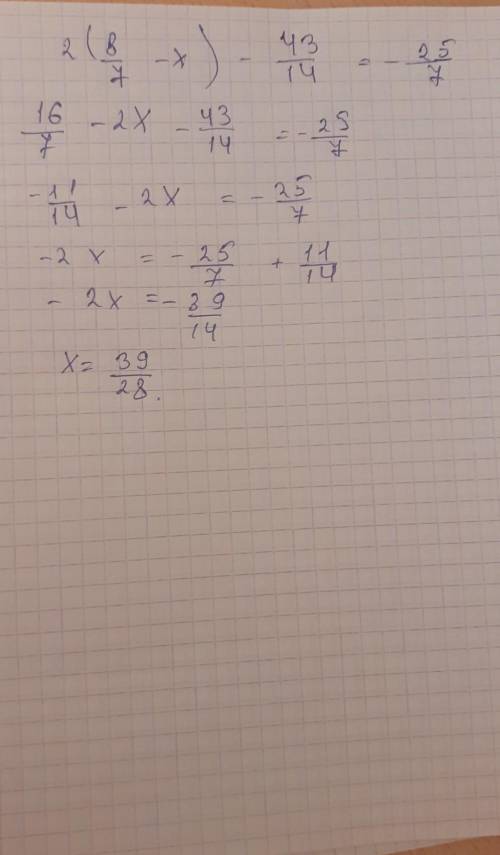 2(8/7 - x) - 43/14 = - 25/7
16/7 - 2x - 43/14 = - 25/7
- 11/14 - 2x = - 25/7
- 2x = - 25/7 + 11/14
- 2x = - 39/14
x = 39/28.